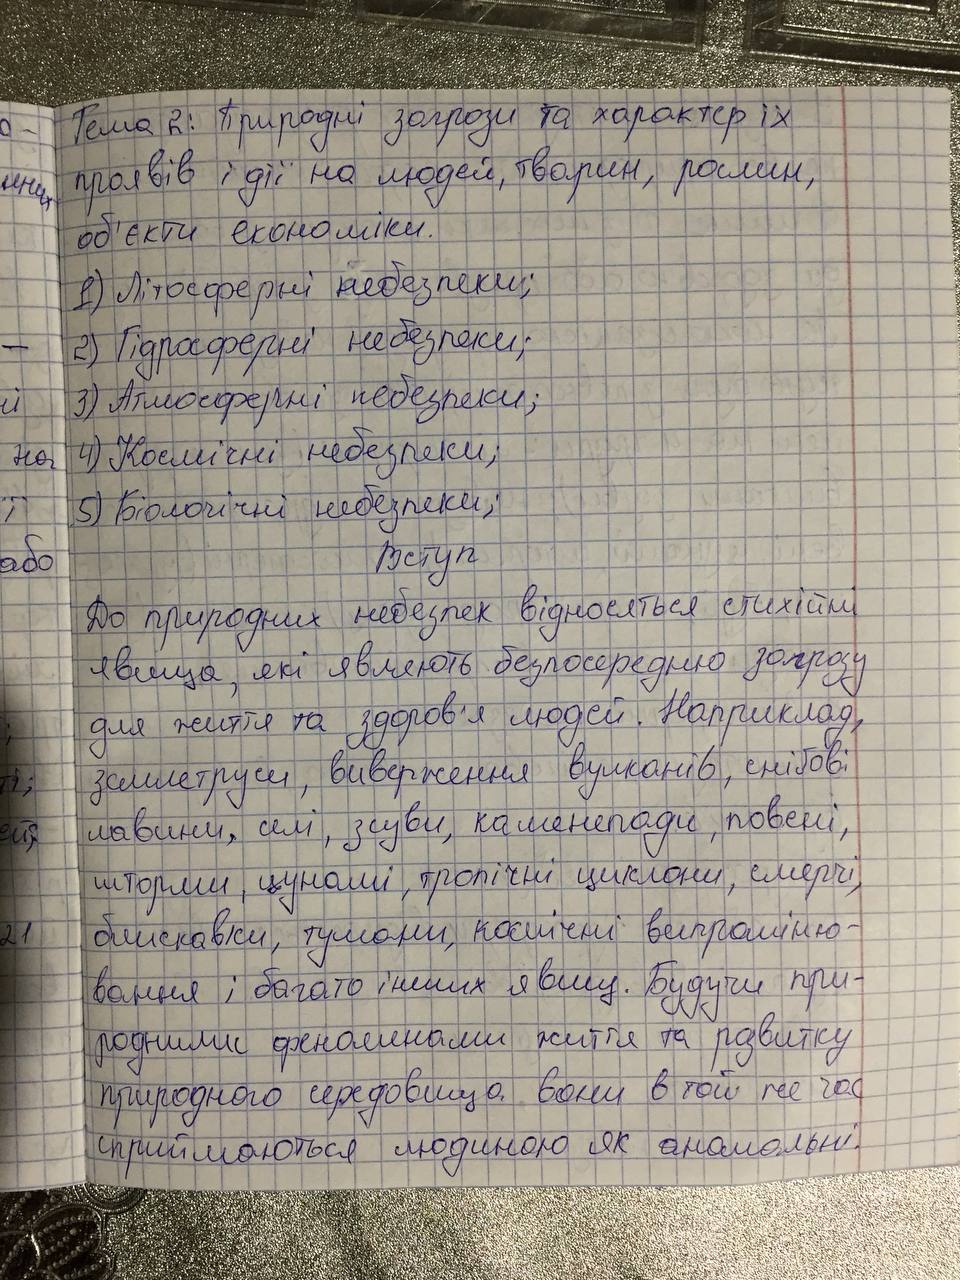 Тема 2: Природні загрози та характер їх
проявів і дії на людей, тварин, рослин,
об'єкти економіки.
1) Літосферні небезпеки;
2) Гідросферні небезпеки;
3) Атмосферні небезпеки;
4) Космічні небезпеки;
5) Біологічні небезпеки;
Вступ
До природних небезпек відносяться стихійні
явища, які являють безпосередню загрозу
для життя та здоров'я людей. Наприклад,
землетруси, виверження вулканів, снігові
лавини, селі, зсуви, каменепади, повені,
шторми, цунамі, тропічні циклони, смерчі,
блискавки, тумани, космічні випроміню-
вання і багато інших явищ. Будучи при-
родними феноменами життя та розвитку
природного середовища вони в той же час
сприймаються людиною як аномальні.
на
або
21